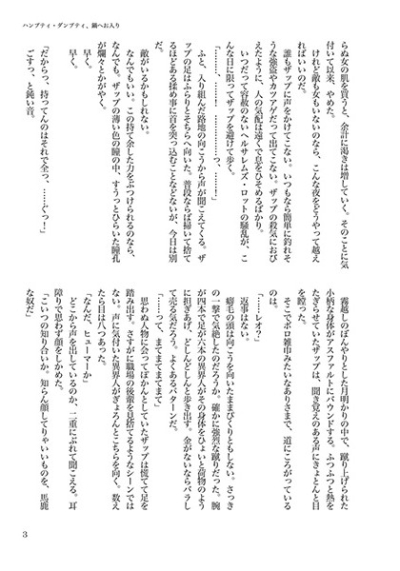 ハンプティ・ダンプティ、鍋へお入り
らぬ女の肌を買うと、余計に渇きは増していく。そのことに気
付いて以来、やめた。
　けれど敵も女もいないのなら、こんな夜をどうやって越え
ればいいのだ。
　誰もザップに声をかけてこない。いつもなら簡単に釣れそ
うな強盗やカツアゲだって出てこない。ザップの殺気におび
えたように、人の気配は遠くで息をひそめるばかり。
　いつだって容赦のないヘルサレムズ・ロットの騒乱が、こ
んな日に限ってザップを避けて歩く。
「……！　………………っ、……！」
　ふと、入り組んだ路地の向こうから声が聞こえてくる。ザ
ップの足はふらりとそちらへ向いた。普段ならば掃いて捨て
るほどある揉め事に首を突っ込むことなどないが、今日は別
だ。
　敵がいるかもしれない。
　なんでもいい。この持て余した力をぶつけられるのなら、
なんでも。ザップの薄い色の瞳の中、すうっとひらいた瞳孔
が爛々とかがやく。
　早く。
　早く。
「だからっ、持ってんのはそれで全っ、……ぐっ！」
　ごすっ、と鈍い音。
　霧越しのぼんやりとした月明かりの中で、蹴り上げられた
小柄な身体がアスファルトにバウンドする。ふつふつと熱を
たぎらせていたザップは、聞き覚えのある声にきょとんと目
を瞠った。
　そこでボロ雑巾みたいなありさまで、道にころがっている
のは。
「……レオ？」
　返事はない。
　癖毛の頭は向こうを向いたままぴくりともしない。さっき
の一撃で気絶したのだろうか。確かに強烈な蹴りだった。腕
が四本で足が六本の異界人がその身体をひょいと荷物のよう
に担ぎあげ、どしんどしんと歩き出す。金がないならバラし
て売る気だろう。よくあるパターンだ。
「……って、まてまてまてまて」
　思わぬ人物に会ってぽかんとしていたザップは慌てて足を
踏み出す。さすがに職場の後輩を見捨てるようなシーンでは
ない。声に気付いた異界人がぎょろんとこちらを向く。数え
たら目は八つあった。
「なんだ、ヒューマーか」
　どこから声を出しているのか、二重にぶれて聞こえる。耳
障りで思わず顔をしかめた。
「こいつの知り合いか。知らん顔してりゃいいものを、馬鹿
な奴だ」
3